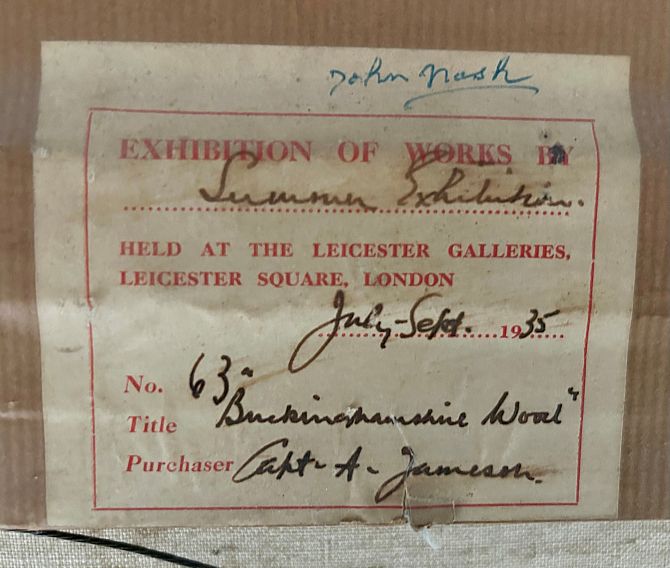 John Nash
EXHIBITION OF WORKS BY
Summer Exhibition.
HELD AT THE LEICESTER GALLERIES,
LEICESTER SQUARE, LONDON
July-Sept. 1935
No. 63
Title "Buckinghamshire Wood"
Purchaser Capt. A. Jameson.